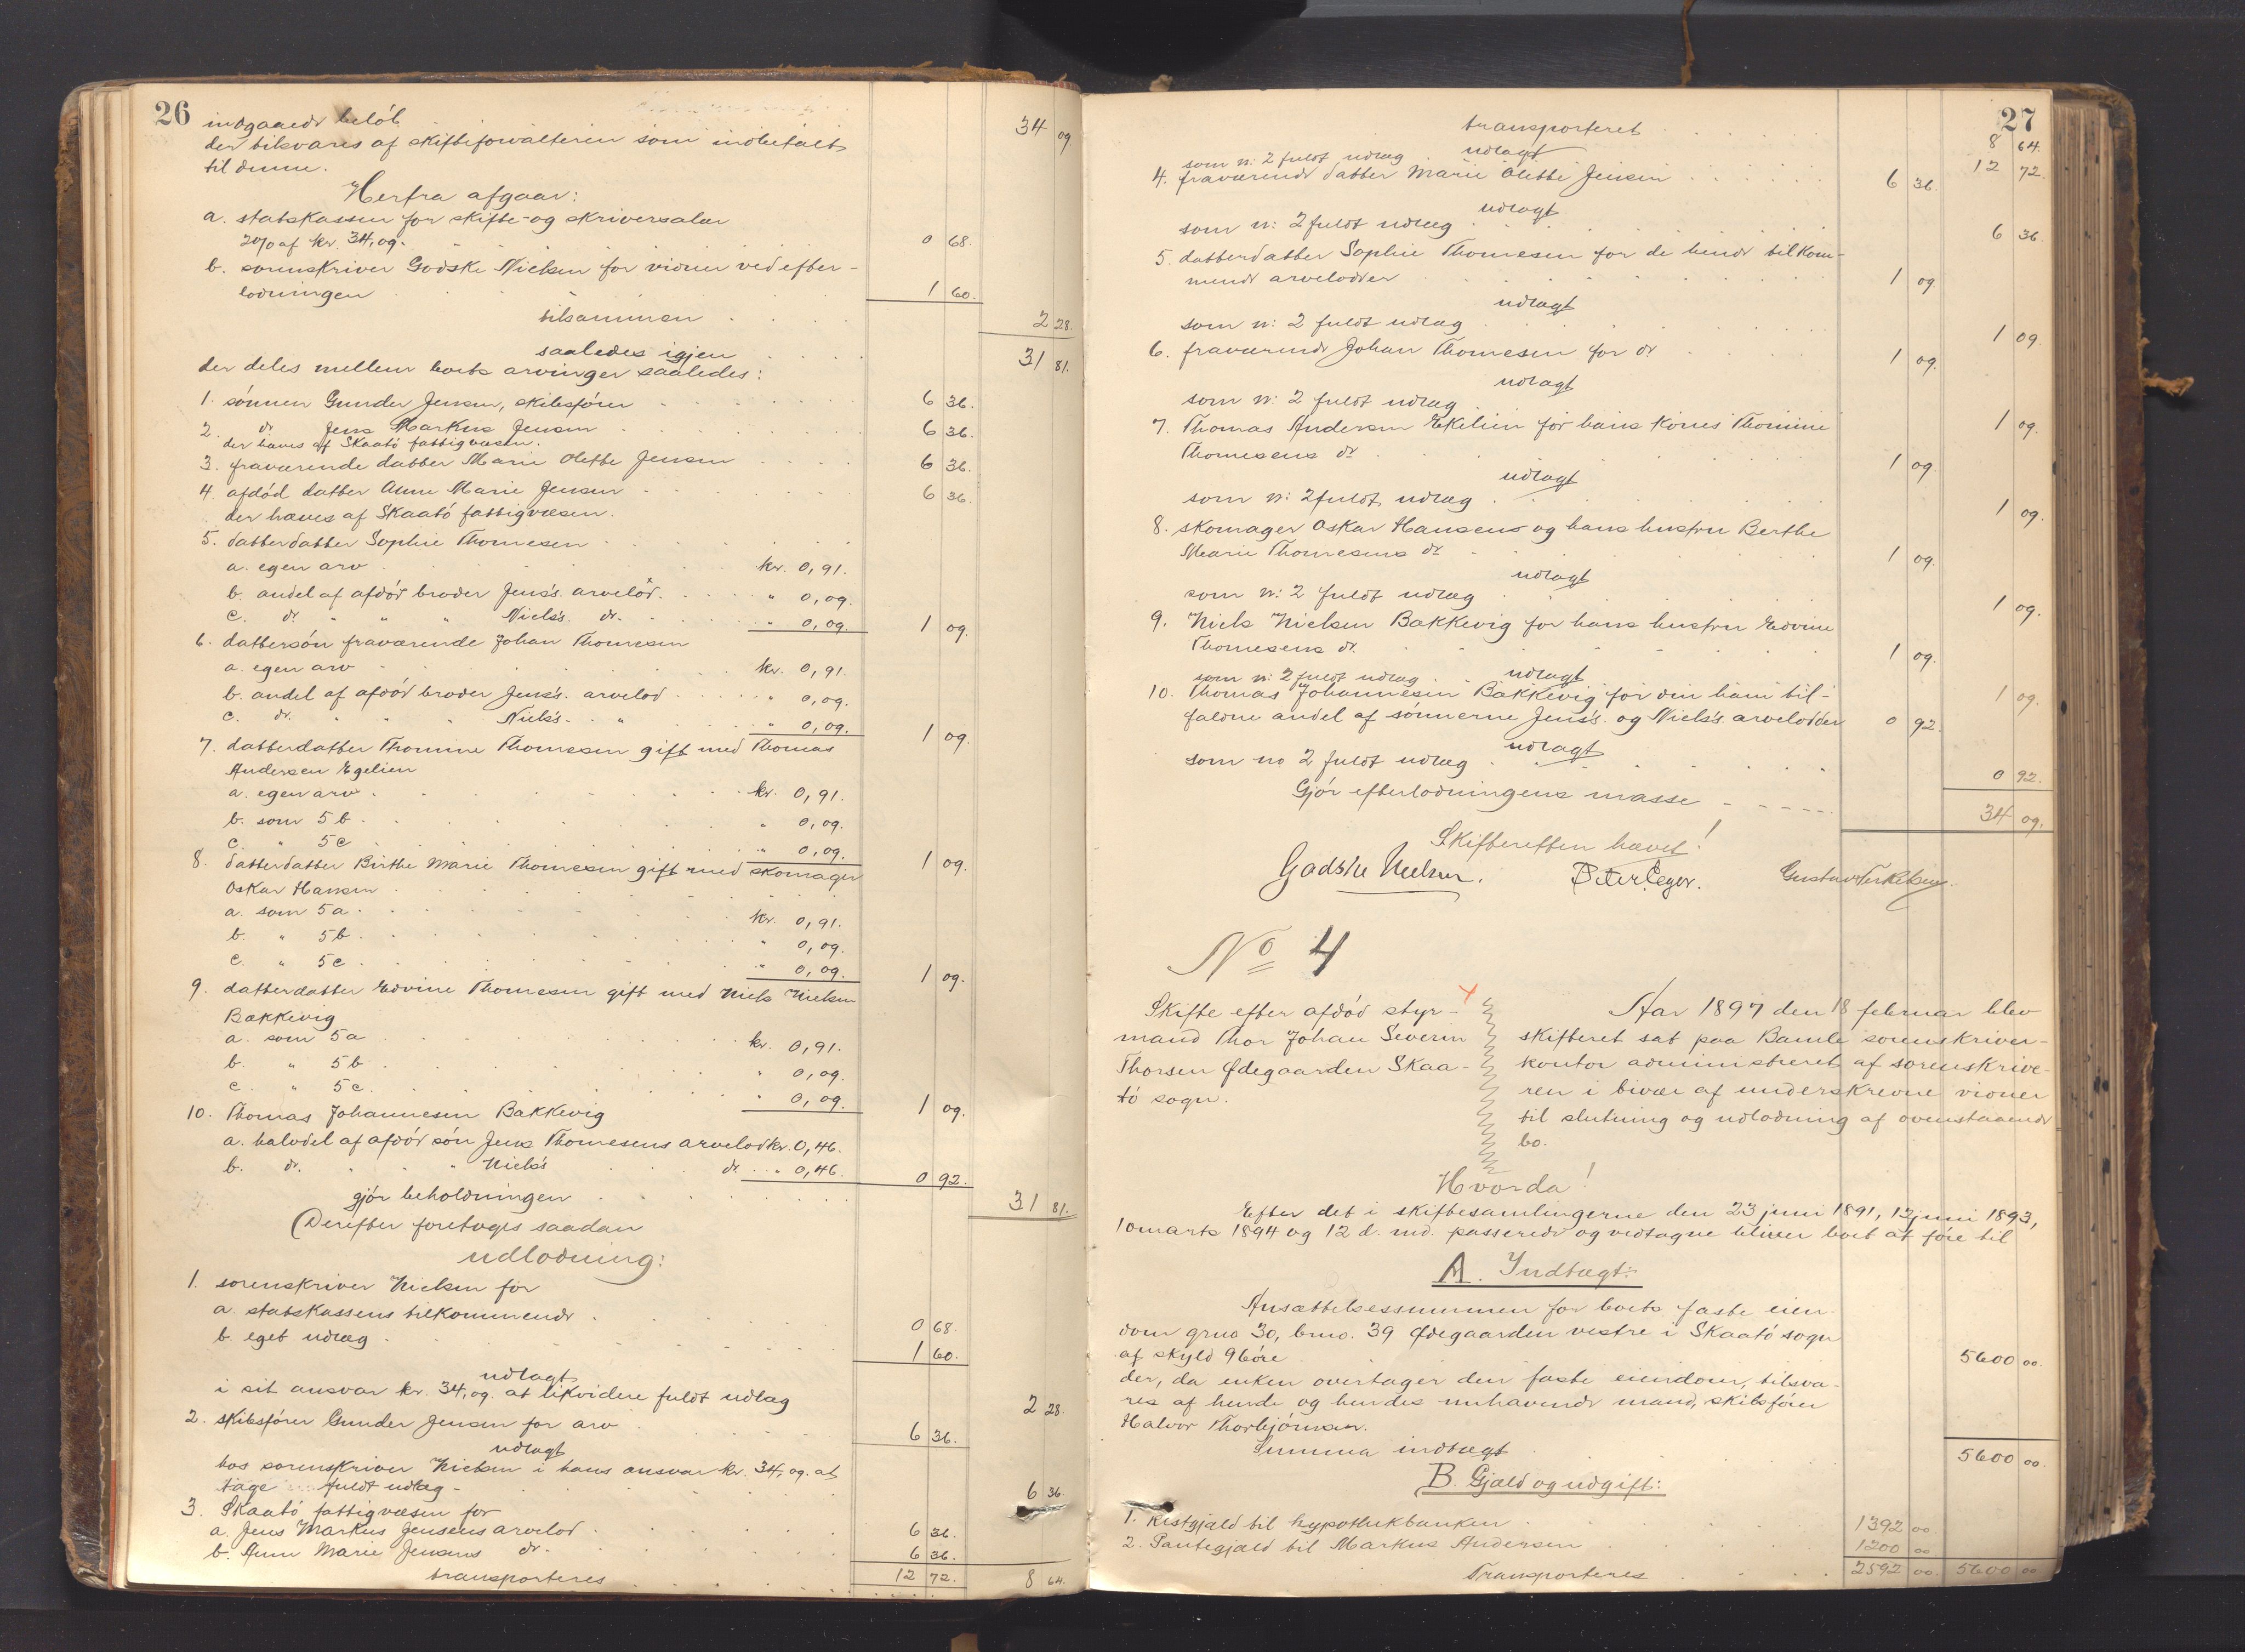 26
indgaaede beløb 34 09
der tilsvares af skifteforvalteren som indbetalt
til denne.
Herfra afgaar:
a. statskassen for skifte- og skriversalær
2% af kr. 34,09. 0 68.
b. sorenskriver Godske Nielsen for vidner ved efter-
lodningen 1 60.
tilsammen 2 28.
saaledes igjen 31 81.
der deles mellem boets arvinger saaledes:
1. sønnen Gunder Jensen, skibsfører 6 36.
2. do Jens Markus Jensen 6 36.
der hæves af Skaatø fattigvæsen.
3. fraværende datter Marie Olette Jensen 6 36.
4. afdød datter Anne Marie Jensen 6 36.
der hæves af Skaatø fattigvæsen.
5. datterdatter Sophie Thomesen
a. egen arv kr. 0,91.
b. andel af afdød broder Jens's. arvelod. " 0,09.
c. do " " " Niels's. do. " 0,09. 1 09.
6. dattersøn fraværende Johan Thomesen
a. egen arv kr. 0,91.
b. andel af afdød broder Jens's. arvelod " 0,09.
c. do. " " " Niels's. " " 0,09. 1 09.
7. datterdatter Thomine Thomesen gift med Thomas
Andersen Egelien
a. egen arv kr. 0,91.
b. som 5b. " 0,09.
c. " 5c " 0,09. 1 09.
8. datterdatter Birthe Marie Thomesen gift med skomager
Oskar Hansen
a. som 5a. kr. 0,91.
b. " 5b. " 0,09.
c. " 5c. " 0,09. 1 09.
9. datterdatter Edvine Thomesen gift med Niels Nielsen
Bakkevig
a. som 5a kr. 0,91.
b. " 5b " 0,09.
c. " 5c. " 0,09. 1 09.
10. Thomas Johannesen Bakkevig
a. halvdel af afdød søn Jens Thomesens arvelod kr. 0,46.
b. do. " " " Niels's do. " 0,46. 0 92.
gjør beholdningen 31 81.
Derefter foretoges saadan
udlodning:
1. sorenskriver Nielsen for
a. statskassens tilkommende 0 68.
b. eget udlæg 1 60.
udlagt
i sit ansvar kr. 34,09. at likvidere fuldt udlæg 2 28.
2. skibsfører Gunder Jensen for arv 6 36.
udlagt
hos sorenskriver Nielsen i hans ansvar kr. 34,09. at
tage fuldt udlæg - 6 36.
3. Skaatø fattigvæsen for
a. Jens Markus Jensens arvelod 6 36.
b. Anne Marie Jensens do. 6 36.
transporteres 12 72. 8 64.
27
transporteret 8 64.
udlagt
som n: 2 fuldt udlæg 12 72.
4. fraværende datter Marie Olette Jensen 6 36.
udlagt
som n: 2 fuldt udlæg 6 36.
5. datterdatter Sophie Thomesen for de hende tilkom-
mende arvelodder 1 09.
udlagt
som n: 2 fuldt udlæg 1 09.
6. fraværende Johan Thomesen for do 1 09.
udlagt
som n: 2 fuldt udlæg 1 09.
7. Thomas Andersen Ekelien for hans kones Thomine
Thomesens do 1 09.
udlagt
som n: 2 fuldt udlæg 1 09.
8. skomager Oskar Hansens og hans hustru Berthe
Marie Thomesens do 1 09.
udlagt
som n: 2 fuldt udlæg 1 09.
9. Niels Nielsen Bakkevig for hans hustru Edvine
Thomesens do. 1 09.
udlagt
som n: 2 fuldt udlæg 1 09.
10. Thomas Johannesen Bakkevig for den ham til-
faldne andel af sønnerne Jens's. og Niels's arvelodder 0 92.
udlagt
som no 2 fuldt udlæg 0 92.
Gjør efterlodningens masse 34 09.
Skifteretten hævet!
Godske Nielsen. Peter Eeger. Gustav Terkelsen.
No 4
Skifte efter afdød styr-
mand Thor Johan Severin
Thorsen Ødegaarden Skaa-
tø sogn.
Aar 1897 den 18 februar blev
skifteret sat paa Bamle sorenskriver-
kontor administreret af sorenskrive-
ren i bivær af underskrevne vidner
til slutning og udlodning af ovenstaaende
bo.
Hvorda!
Efter det i skiftesamlingerne den 23 juni 1891, 12 juni 1893,
10 marts 1894 og 12 d. md. passerede og vedtagne bliver boet at føre til
A. Indtægt:
Ansættelsessummen for boets faste eien-
dom grno 30, brno. 39 Ødegaarden vestre i Skaatø sogn
af skyld 96 øre 5600 00.
der, da enken overtager den faste eiendom, tilsva-
res af hende og hendes nuhavende mand, skibsfører
Halvor Thorbjørnsen.
Summa indtægt 5600 00.
B. Gjæld og udgift:
1. Restgjæld til hypothekbanken 1392 00
2. Pantegjæld til Markus Andersen 1200 00
Transporteres 2592 00. 5600 00